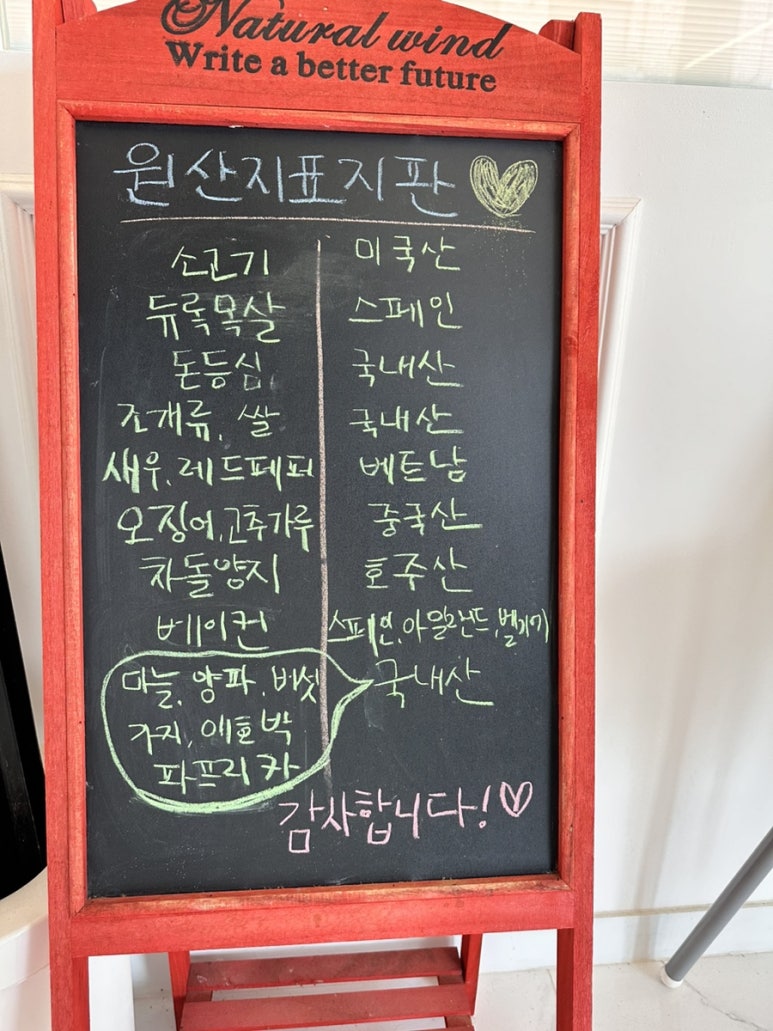 Natural wind
Write a better future
원산지표지판
소고기 미국산
듀록목살 스페인
돈등심 국내산
조개류, 쌀 국내산
새우, 레드페퍼 베트남
오징어, 고추가루 중국산
차돌양지 호주산
베이컨 스페인, 아일랜드, 벨기에
마늘, 양파, 버섯 국내산
가지, 애호박
파프리카
감사합니다!